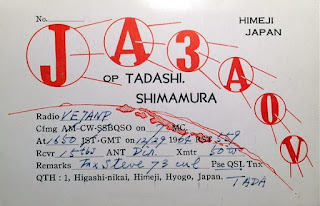 No.
HIMEJI
JAPAN
JA3AOV
OP TADASHI.
SHIMAMURA
Radio VE7ANP
Cfmg AM-CW-SSBQSO on 7 MC
At 1650 JST-GMT on 12/29 1964 RST 559
Rcvr 15tbs ANT Dir. Xmtr 50 w
Remarks Tnx Steve 73 cul Pse QSL Tnx
QTH : 1, Higashi-nikai, Himeji, Hyogo, Japan.
TADA